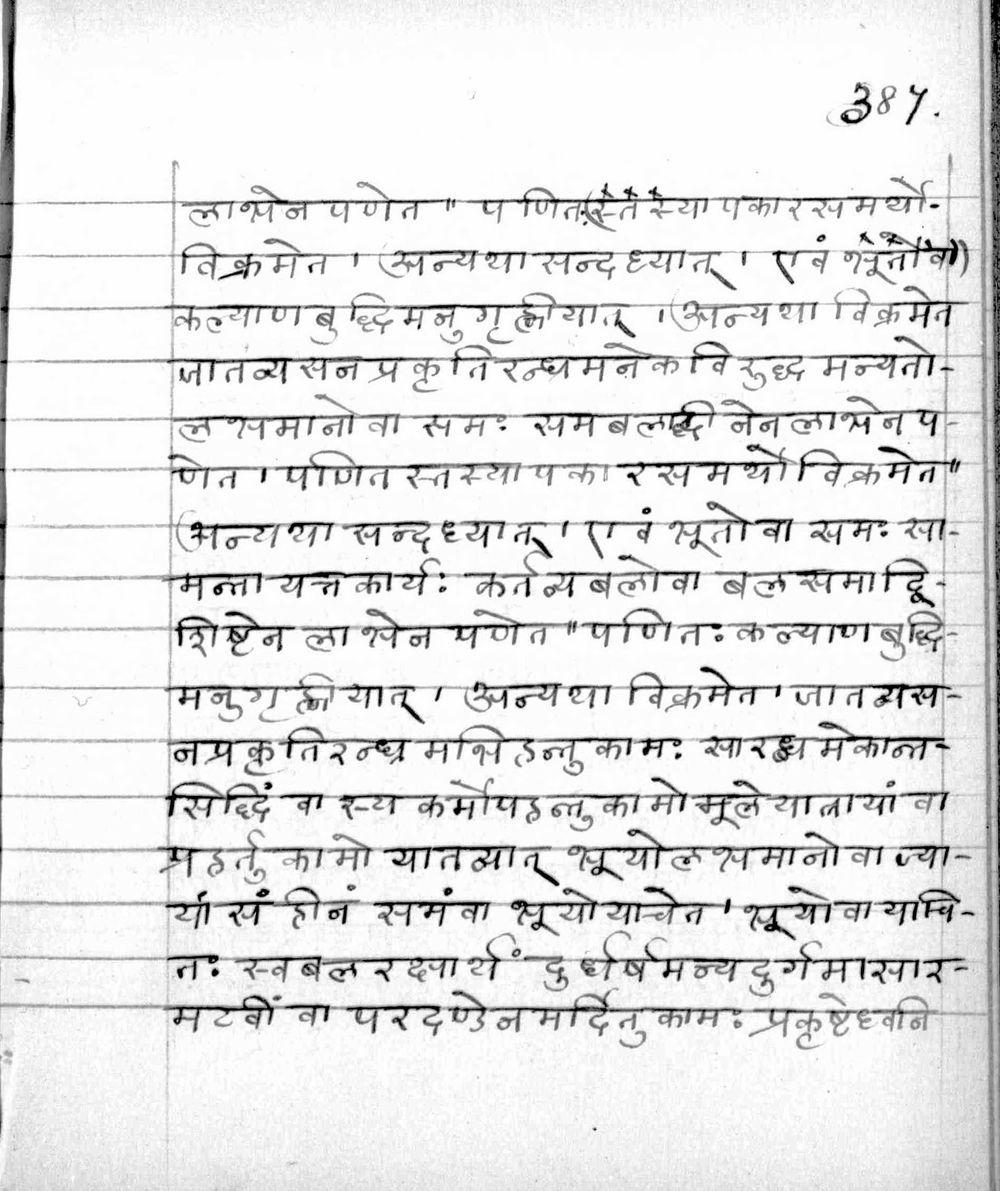 387.
लाभेन पणेत " पणित(स्तस्यापकारसमर्थो-
विक्रमेत । अन्यथा सन्दध्यात् । एवं भूतो वा)
कल्याणबुद्धिमनुगृह्णीयात् । अन्यथा विक्रमेत
जातव्यसनप्रकृतिरन्ध्रमनेकविरुद्धमन्यतो-
लभमानो वा समः समबलाद्धीनेन लाभेन प-
णेत । पणितस्तस्यापकारसमर्थो विक्रमेत "
अन्यथा सन्दध्यात् । एवं भूतो वा समः सा-
मन्तायत्तकार्यः कर्तव्यबलो वा बलसमाद्वि-
शिष्टेन लाभेन पणेत " पणितः कल्याणबुद्धि-
मनुगृह्णीयात् । अन्यथा विक्रमेत । जातव्यस-
नप्रकृतिरन्ध्रमभिहन्तुकामः सारब्धमेकान्त-
सिद्धिं वा स्य कर्मोपहन्तुकामो मूले यात्रायां वा
प्रहर्तुकामो यातव्यात् भूयो लभमानो वा ज्या-
यांसं हीनं समं वा भूयो याचेत । भूयो वा याचि-
तः स्वबलरक्षार्थं दुर्धर्षमन्यदुर्गमासार-
मटवीं वा परदण्डेन मर्दितुकामः प्रकृष्टेध्वनि